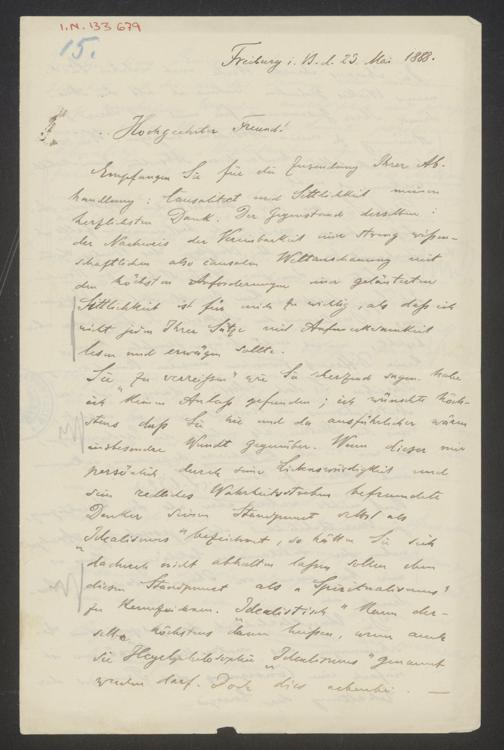 I.N. 133 679
15.
Freiburg i. B. d. 23. Mai 1888.
Hochgeehrter Freund!
Empfangen Sie für die Zusendung Ihrer Ab-
handlung: Causalität und Sittlichkeit meinen
herzlichsten Dank. Der Gegenstand derselben:
der Nachweis der Vereinbarkeit einer streng wissen-
schaftlichen also causalen Weltanschauung mit
den höchsten Anforderungen einer geläuterten
Sittlichkeit ist für mich zu wichtig, als daß ich
nicht jeden Ihrer Sätze mit Aufmerksamkeit
lesen und erwägen sollte.
Sie „zu verreißen" wie Sie scherzend sagen habe
ich keinen Anlaß gefunden; ich wünschte höch-
stens daß Sie hie und da ausführlicher wären
insbesondere Wundt gegenüber. Wenn dieser mir
persönlich durch seine Liebenswürdigkeit und
sein redliches Wahrheitsstreben befreundete
Denker seinen Standpunct selbst als
„Idealismus" bezeichnet, so hätten Sie sich
dadurch nicht abhalten lassen sollen eben
diesen Standpunct als „Spiritualismus"
zu kennzeichnen. „Idealistisch" kann der-
selbe höchstens dann heißen, wenn auch
die Hegelphilosophie „Idealismus" genannt
werden darf. Doch dies nebenbei. —